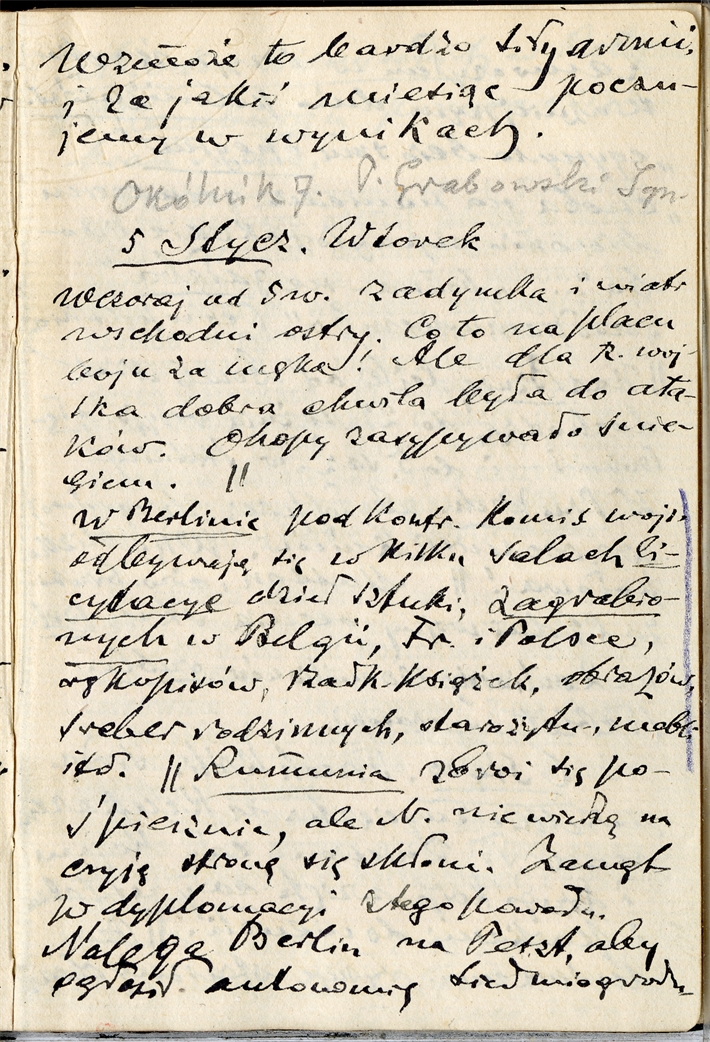 Wzmoże to bardzo siły armii,
i za jakiś miesiąc poczu-
jemy w wynikach.
Okólnik 7. P. Grabowski Syn.
5 Stycz. Wtorek
Wczoraj od św. zadymka i wiatr
wschodni ostry. Co to na placu
boju za męka! Ale dla R. woj-
ska dobra chwila była do ata-
ków. Okopy zasypywało śnie-
giem. ||
W Berlinie pod kontr. Komis wojs.
odbywają się w kilku salach li-
cytacye dzieł sztuki, zagrabio-
nych w Belgii, Fr. i Polsce,
rękopisów, rzadk. książek, obrazów,
sreber rodzinnych, starożytn., mebli
itd. || Rumunia zbroi się po-
śpiesznie, ale N. nie wiedzą na
czyją stronę się skłoni. Zamęt
w dyplomacyi z tego powodu.
Nalega Berlin na Peszt, aby
ogłosił autonomię Siedmiogrodu